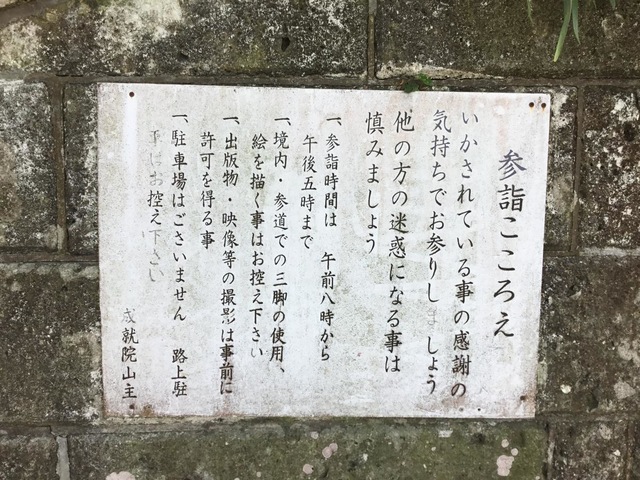 参詣こころえ
いかされている事の感謝の
気持ちでお参りしましょう
他の方の迷惑になる事は
慎みましょう
一、参詣時間は　午前八時から
午後五時まで
一、境内・参道での三脚の使用、
絵を描く事はお控え下さい
一、出版物・映像等の撮影は事前に
許可を得る事
一、駐車場はございません　路上駐
車はお控え下さい
成就院山主